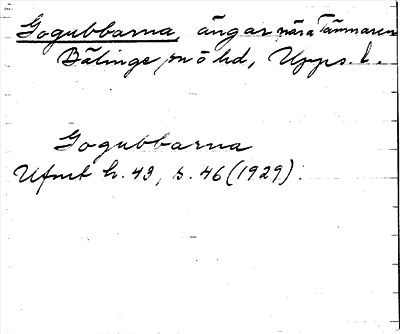 Gogubbarna, ängar nära Tämnaren
Bälinge sn ö hd, Upps. l.
Gogubbarna
Ufmt h. 43, s. 46 (1929).